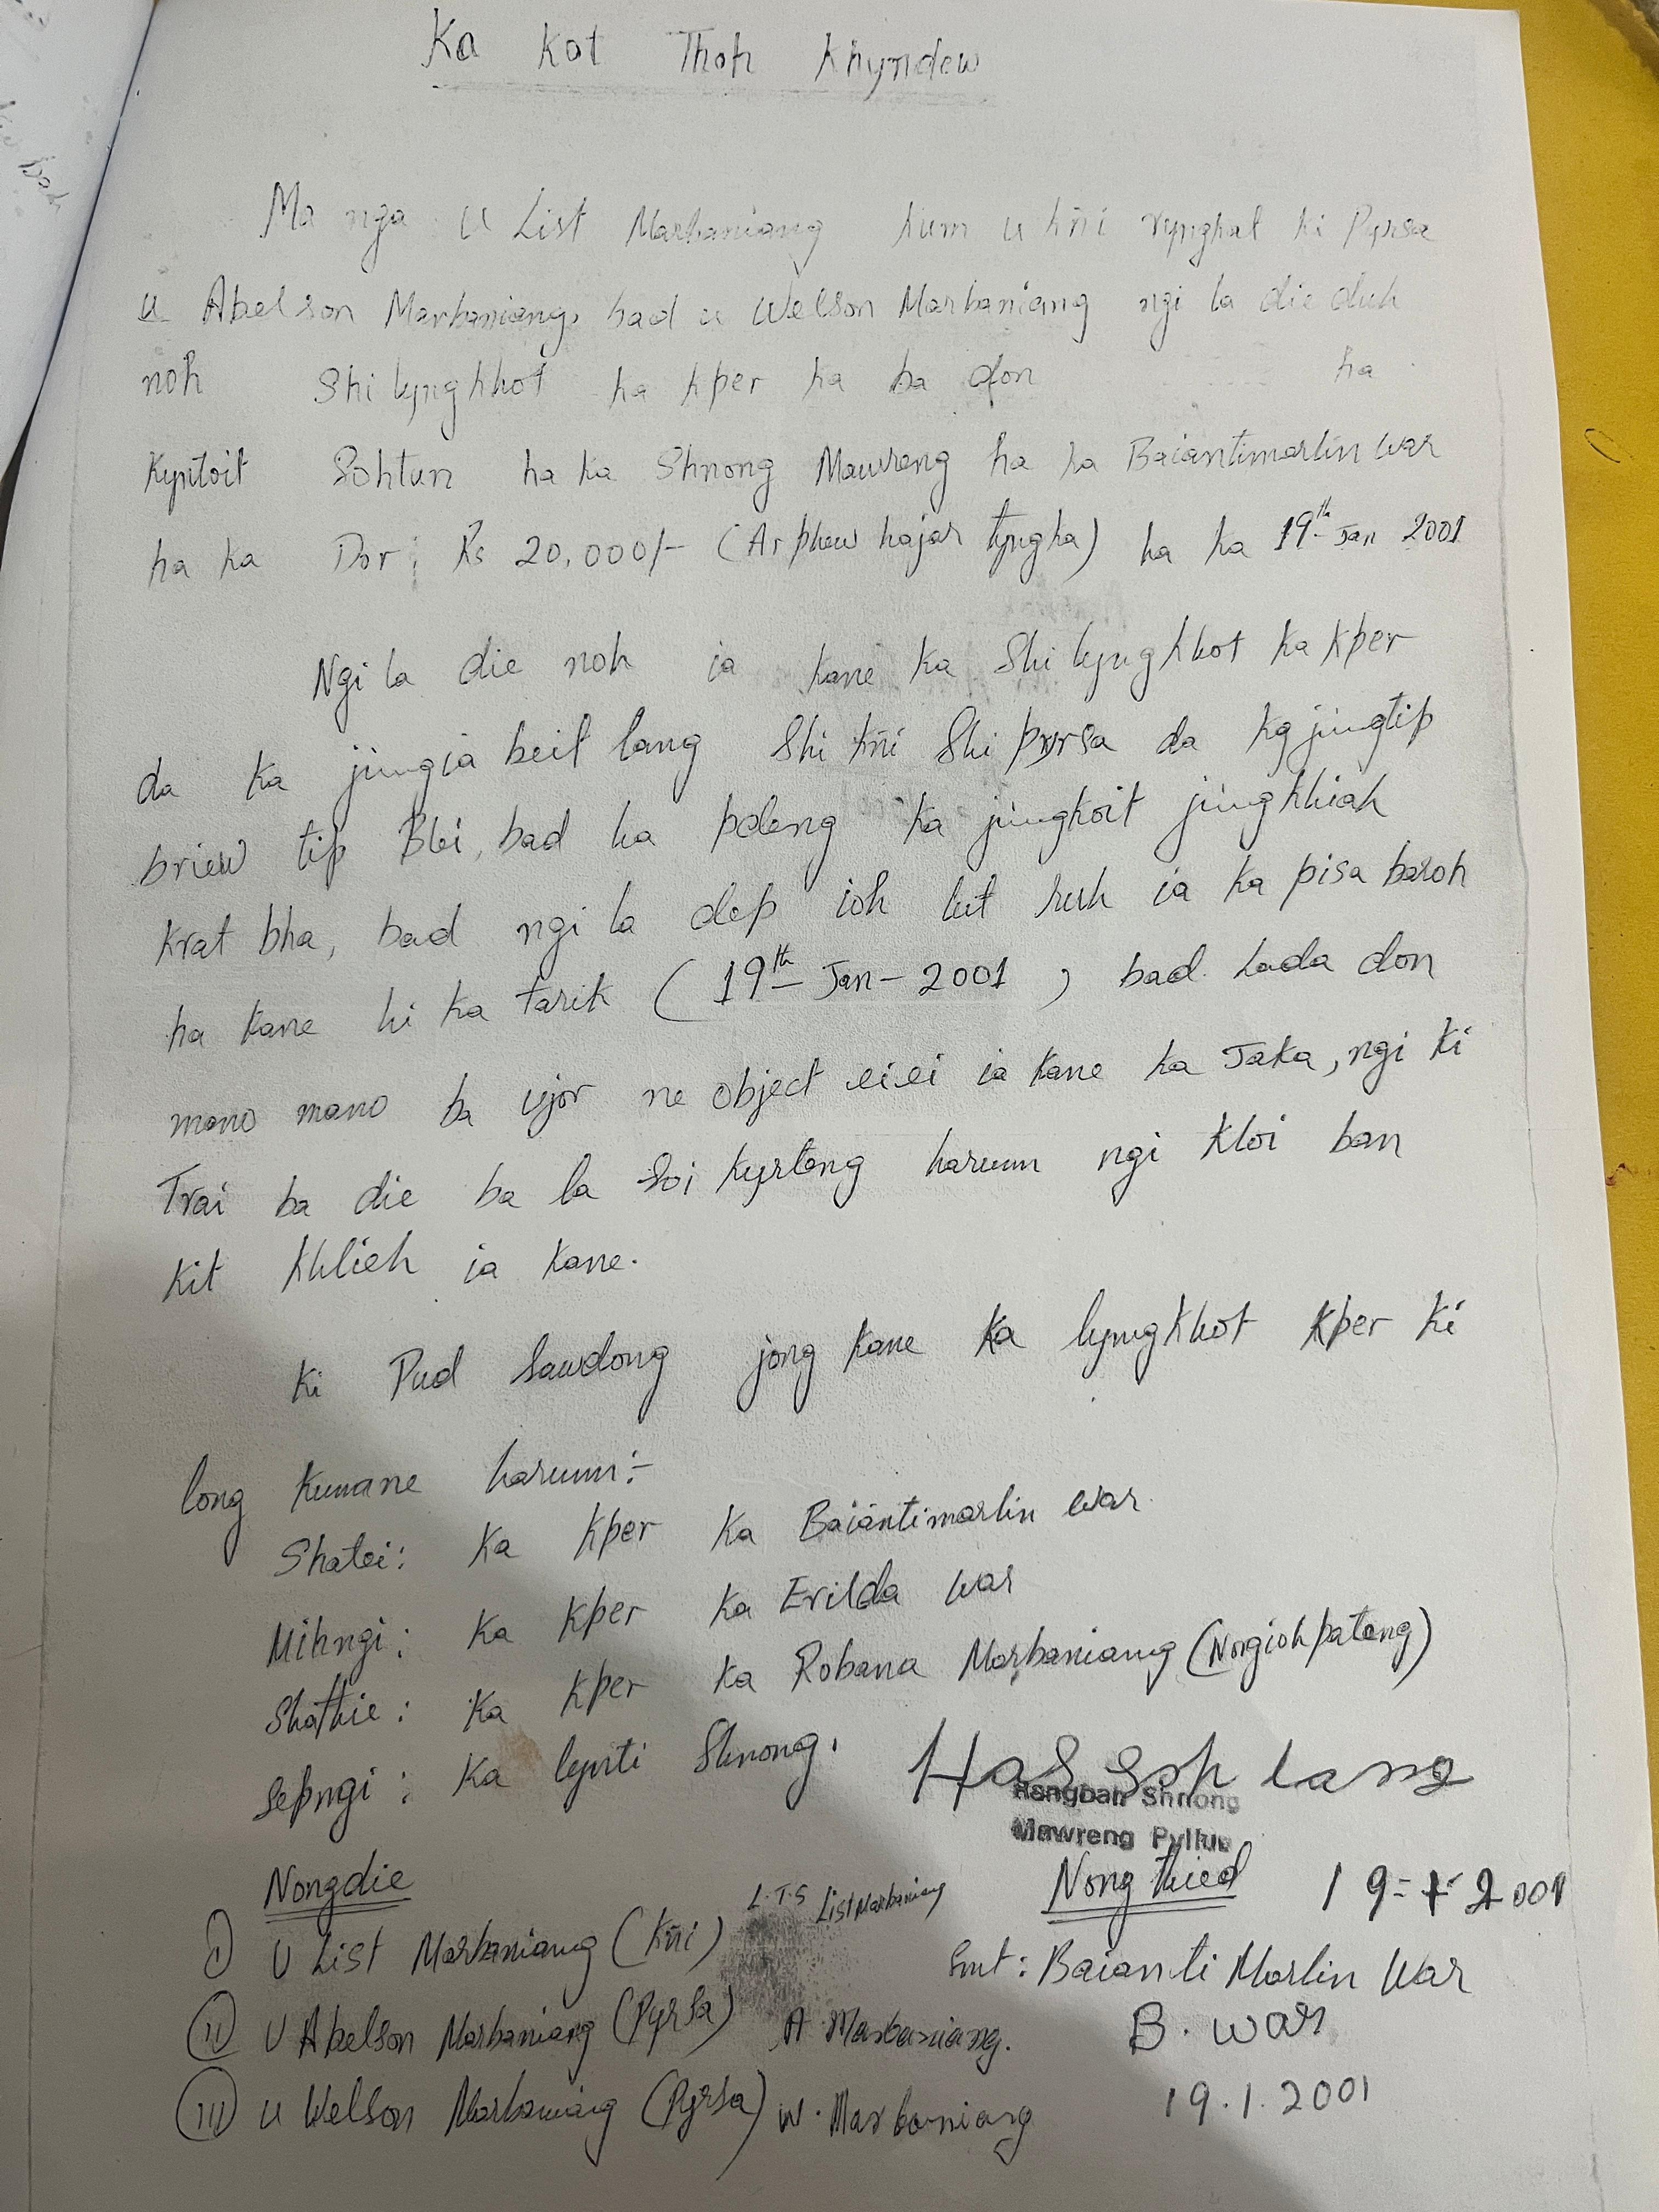 Ka Kot Thoh Khyndew
Ma nga U List Marbaniang kum u kñi rynghat ki Pyrsa
U Abelson Marbaniang, bad u Welson Marbaniang ngi la die duh
noh Shi lyngkhot ka kper ka ba don ha
Kyntoit Sohtun ha ka Shnong Mawreng ha ka Baiantimarlin War
ha ka Dor: Rs 20,000/- (Ar phew hajar tyngka) ha ka 19th Jan 2001
Ngi la die noh ia kane ka Shi lyngkhot ka kper
da ka jingia beit lang Shi kñi Shi pyrsa da ka jingtip
briew tip Blei, bad ha poleng ka jingkoit jingkhiah
krat bha, bad ngi la dep ioh lut ruh ia ka pisa baroh
ha kane hi ka tarik (19th Jan-2001) bad lada don
mano mano ba ujor ne object eiei ia kane ka Jaka, ngi ki
Trai ba die ba la soi kyrteng harum ngi kloi ban
kit khlieh ia kane.
Ki Pud sawdong jong kane ka lyngkhot kper ki
long kumne harum:-
Shatei: Ka kper ka Baiantimarlin War.
Mihngi: Ka kper ka Erilda War
Shathie: Ka kper ka Robana Marbaniang (Nongioh pateng)
Sepngi: Ka lynti Shnong.
Rangbah Shnong
Mawreng Pyllun
Nongdie
Nongthied 19-1-2001
I U List Marbaniang (Kñi) L.T.S List Marbaniang
Smt: Baianti Marlin War
II U Abelson Marbaniang (Pyrsa) A Marbaniang.
B. War
III U Welson Marbaniang (Pyrsa) W. Marbaniang
19.1.2001